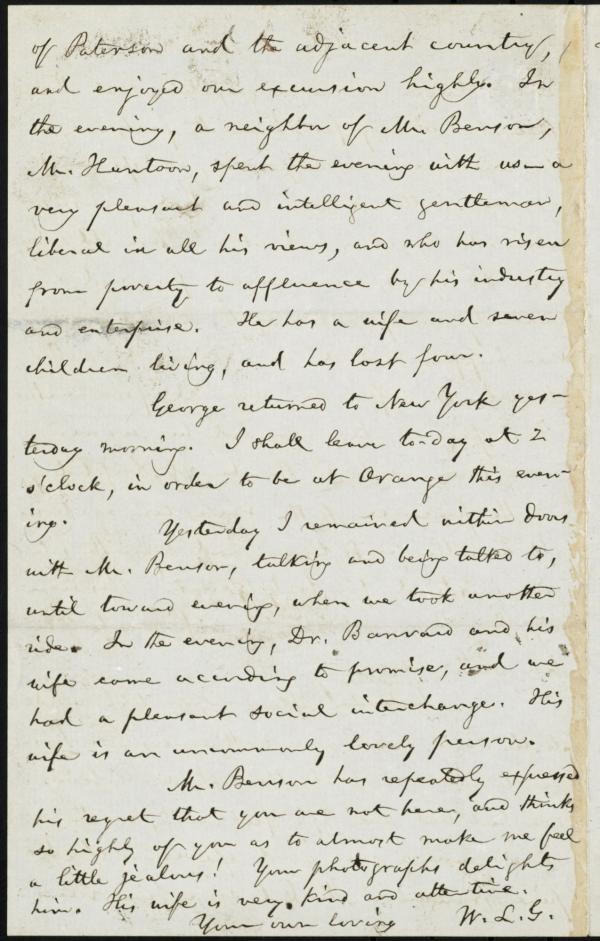 of Paterson and the adjacent country,
and enjoyed our excursion highly. In
the evening, a neighbor of Mr. Benson,
Mr. Huntoon, spent the evening with us—a
very pleasant and intelligent gentleman,
liberal in all his views, and who has risen
from poverty to affluence by his industry
and enterprise. He has a wife and seven
children living, and has lost four.
George returned to New York yes-
terday morning. I shall leave to-day at 2
o'clock, in order to be at Orange this even-
ing.
Yesterday I remained within doors
with Mr. Benson, talking and being talked to,
until toward evening, when we took another
ride. In the evening, Dr. Barnard and his
wife came according to promise, and we
had a pleasant social interchange. His
wife is an uncommonly lovely person.
Mr. Benson has repeatedly expressed
his regret that you are not here, and thinks
so highly of you as to almost make me feel
a little jealous! Your photographs delights
him. His wife is very kind and attentive.
Your own loving W. L. G.